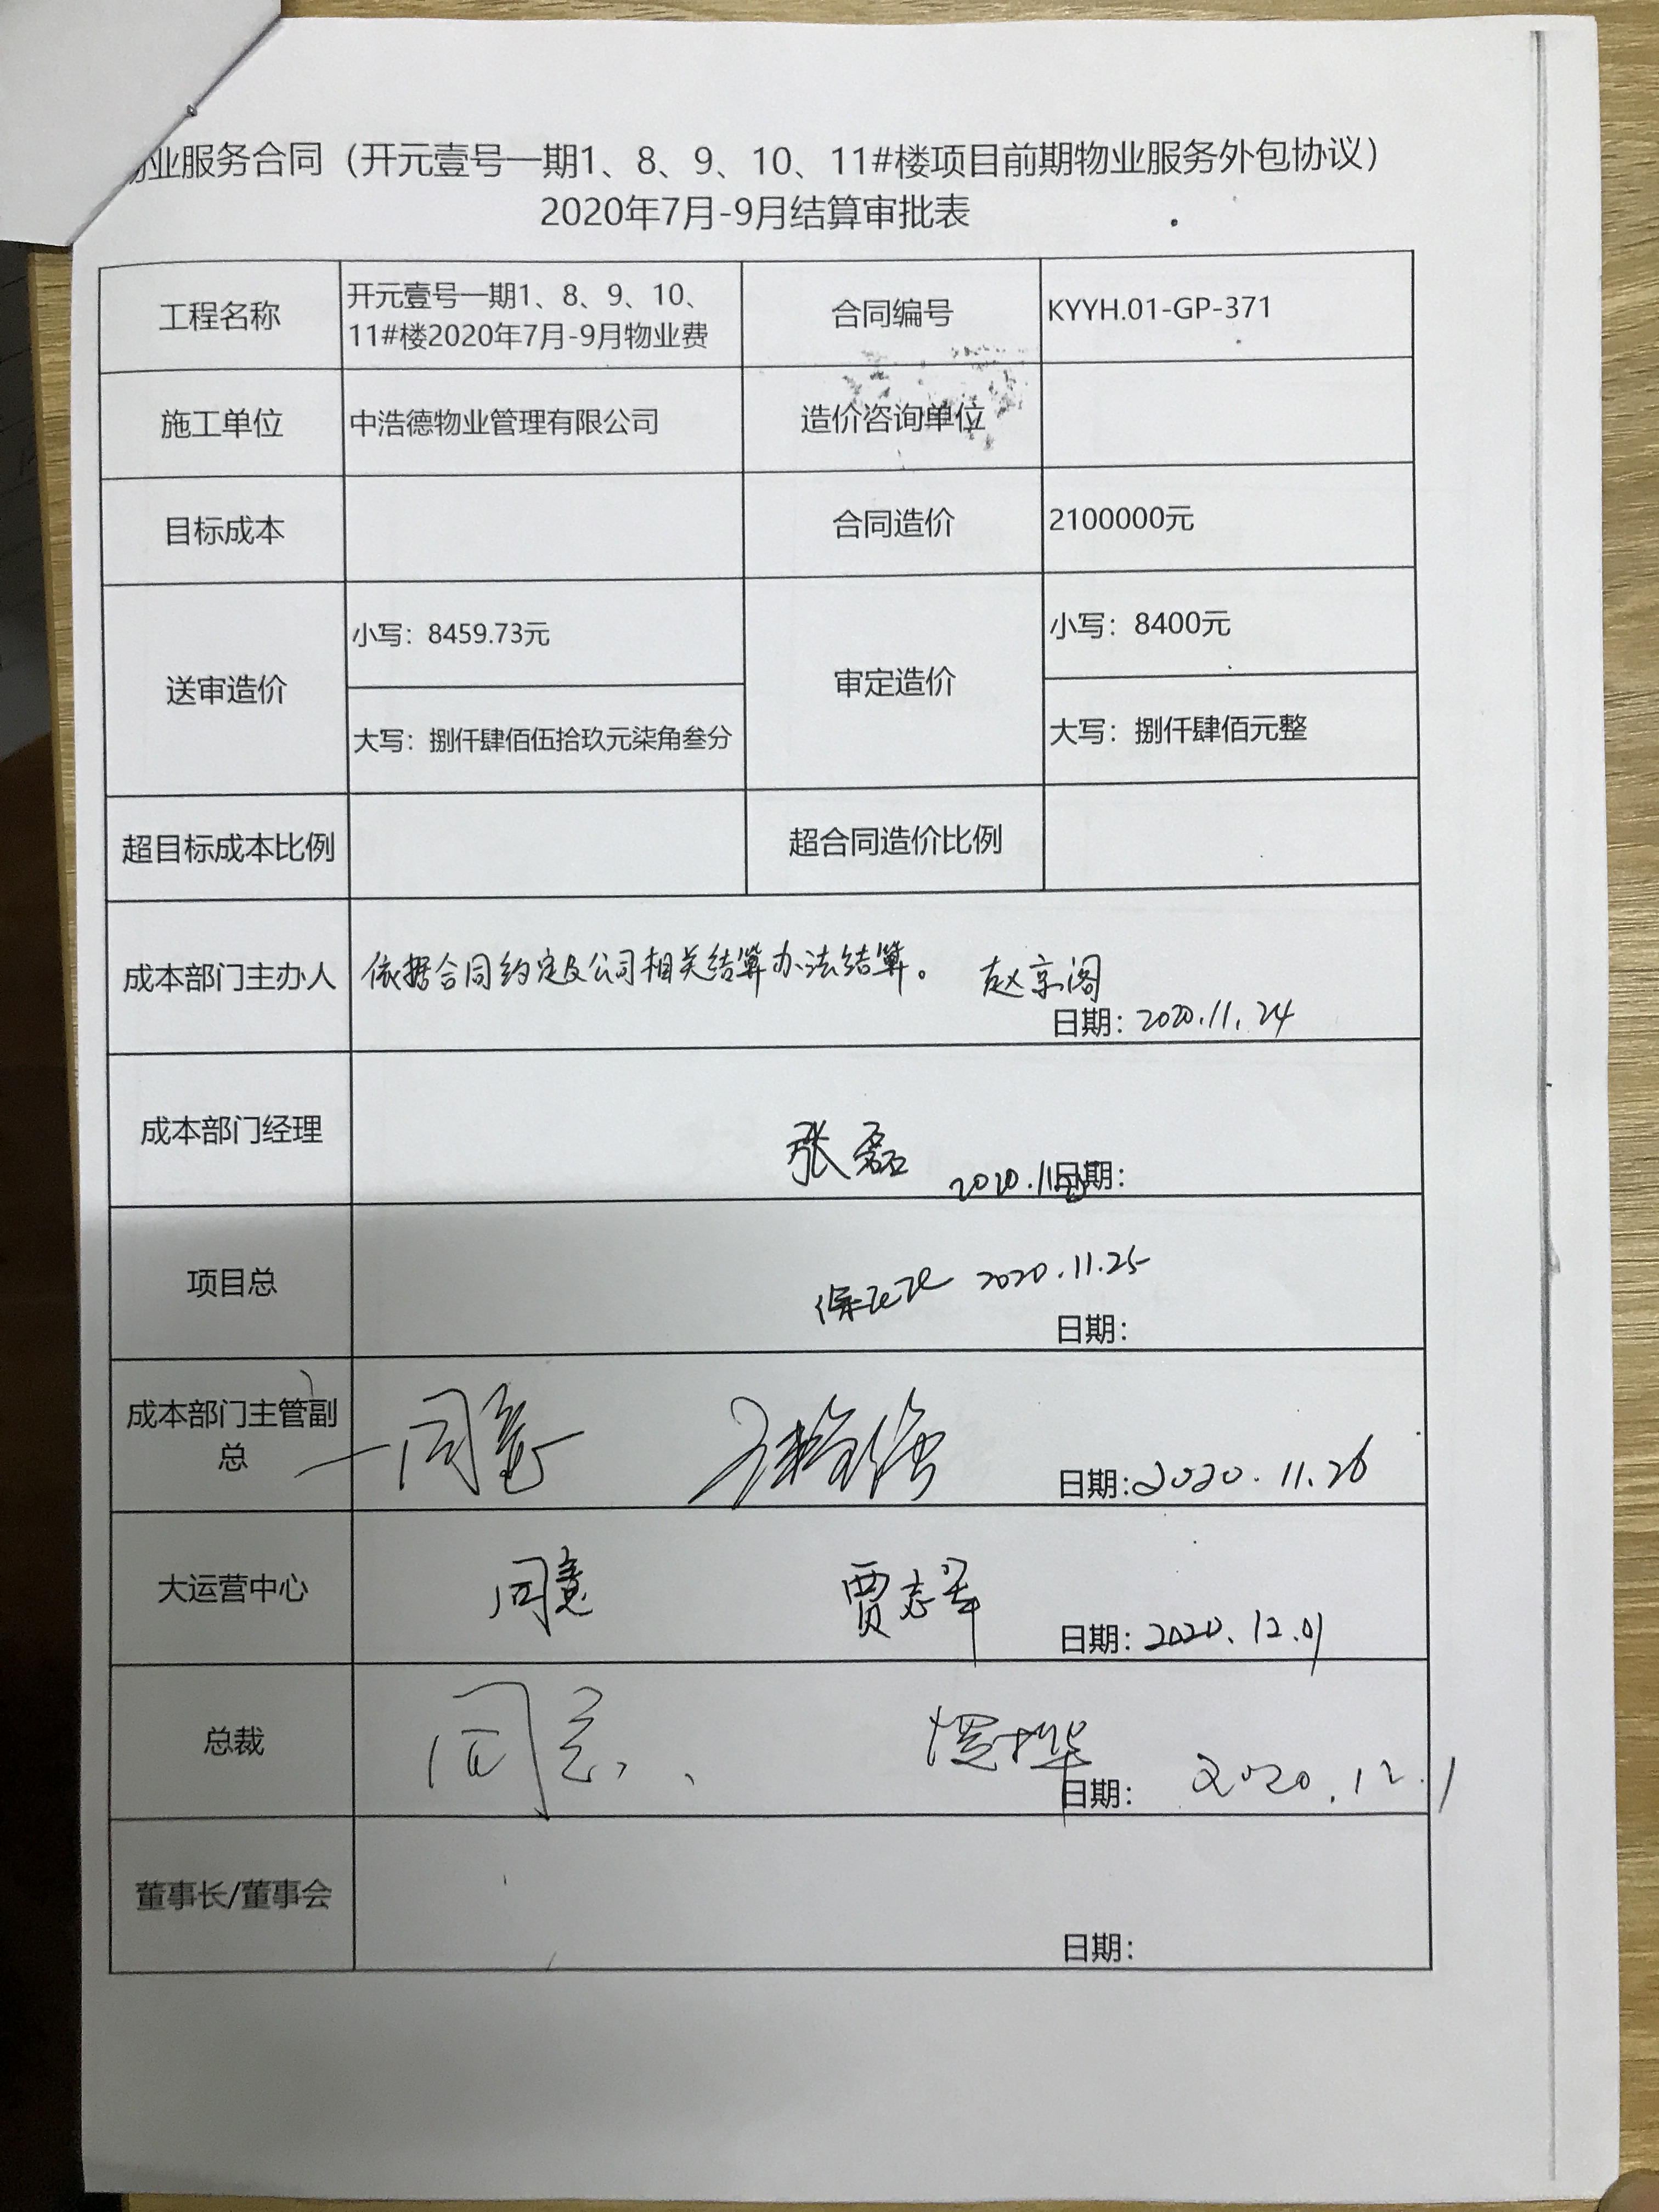 业服务合同（开元壹号一期1、8、9、10、11#楼项目前期物业服务外包协议）
2020年7月-9月结算审批表
工程名称
开元壹号一期1、8、9、10、
11#楼2020年7月-9月物业费
合同编号
KYYH.01-GP-371
施工单位
中浩德物业管理有限公司
造价咨询单位
目标成本
合同造价
2100000元
送审造价
小写：8459.73元
大写：捌仟肆佰伍拾玖元柒角叁分
审定造价
小写：8400元
大写：捌仟肆佰元整
超目标成本比例
超合同造价比例
成本部门主办人
依据合同约定及公司相关结算办法结算。 赵京阁
日期：2020.11.24
成本部门经理
张磊
2020.11 日期：
项目总
2020.11.25
日期：
成本部门主管副
总
同意
日期：2020.11.26
大运营中心
同意 贾志
日期：2020.12.01
总裁
同意
日期： 2020.12.1
董事长/董事会
日期：